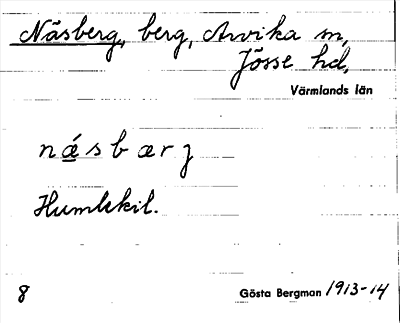 Näsberg, berg, Arvika sn,
Jösse hd,
Värmlands län
nǽsbærj
Humlekil.
8 Gösta Bergman 1913-14